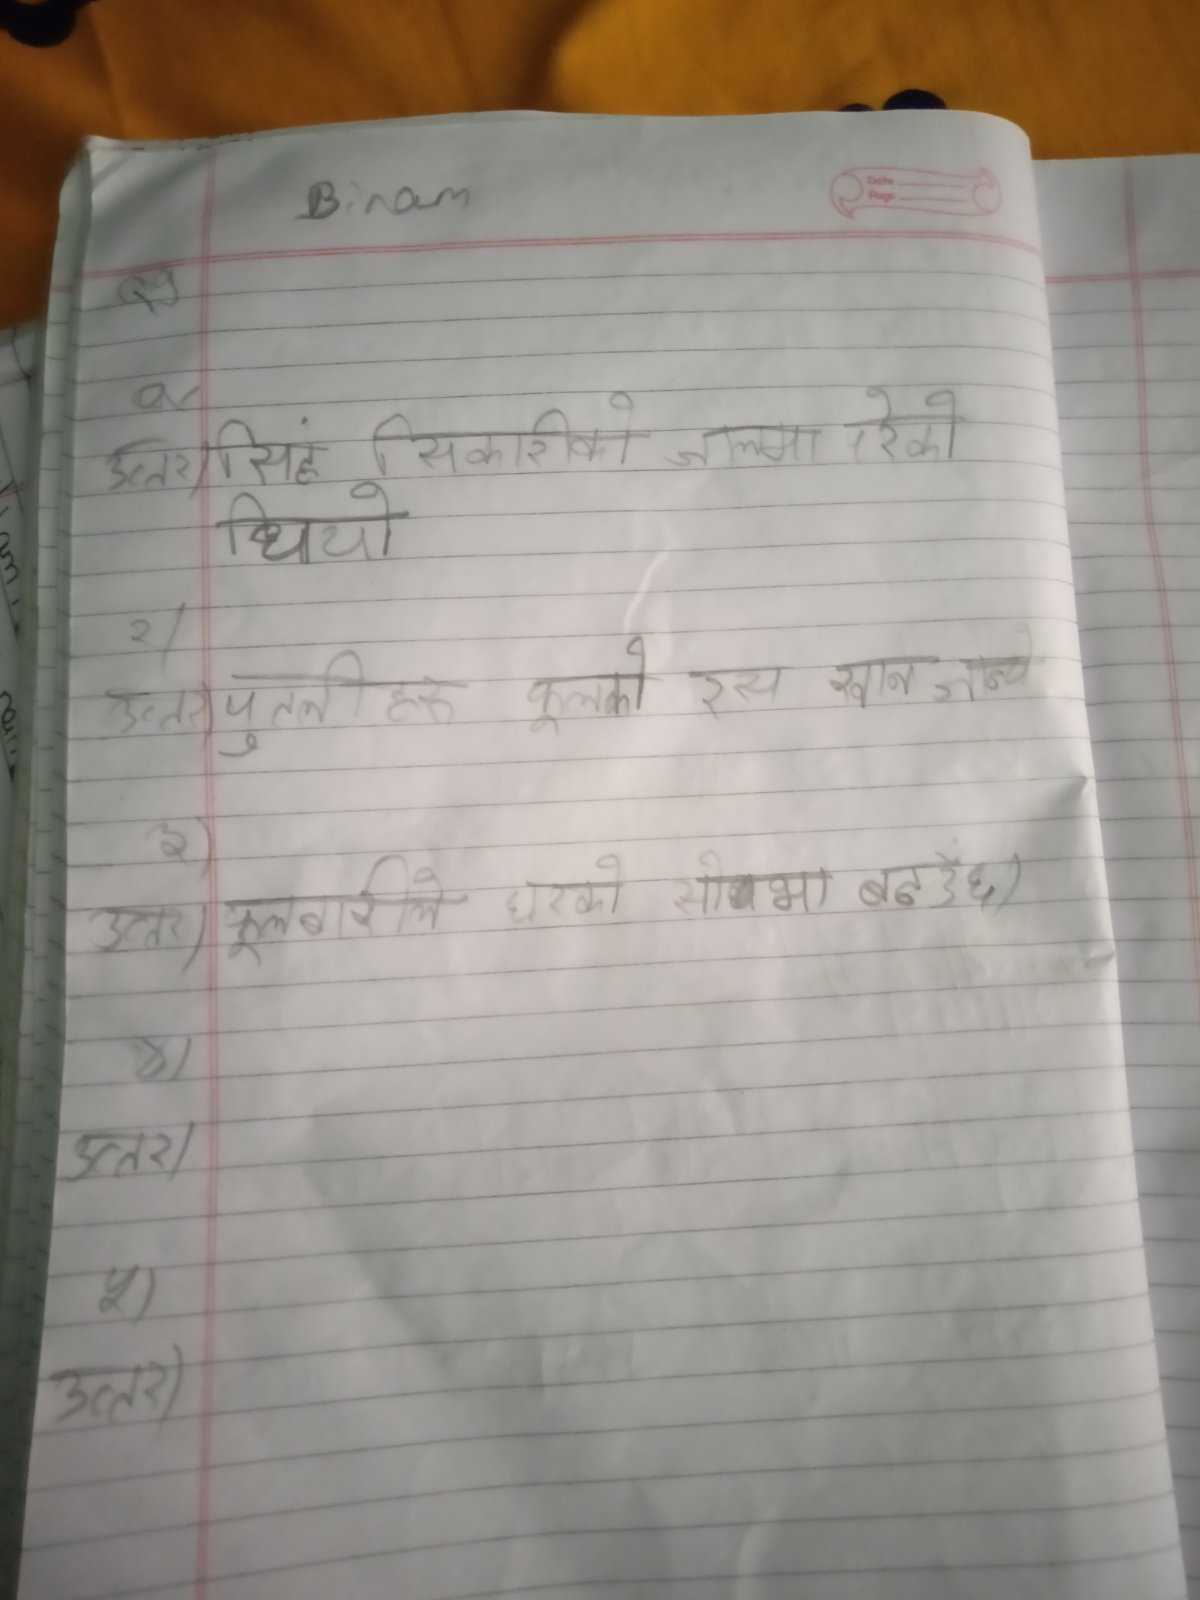 Binam
Date
Page
Q9
उत्तर) सिहं सिकारीको जालमा परेको
थियो
२)
उत्तर) पुतली हरु फूलको रस खान जान्थे
३)
उत्तर) फूलबारीले घरको सोभा बढउँछ)
४)
उत्तर)
५)
उत्तर)